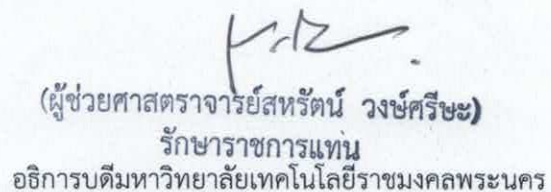 (ผู้ช่วยศาสตราจารย์สหรัตน์ วงษ์ศรีษะ)
รักษาราชการแทน
อธิการบดีมหาวิทยาลัยเทคโนโลยีราชมงคลพระนคร